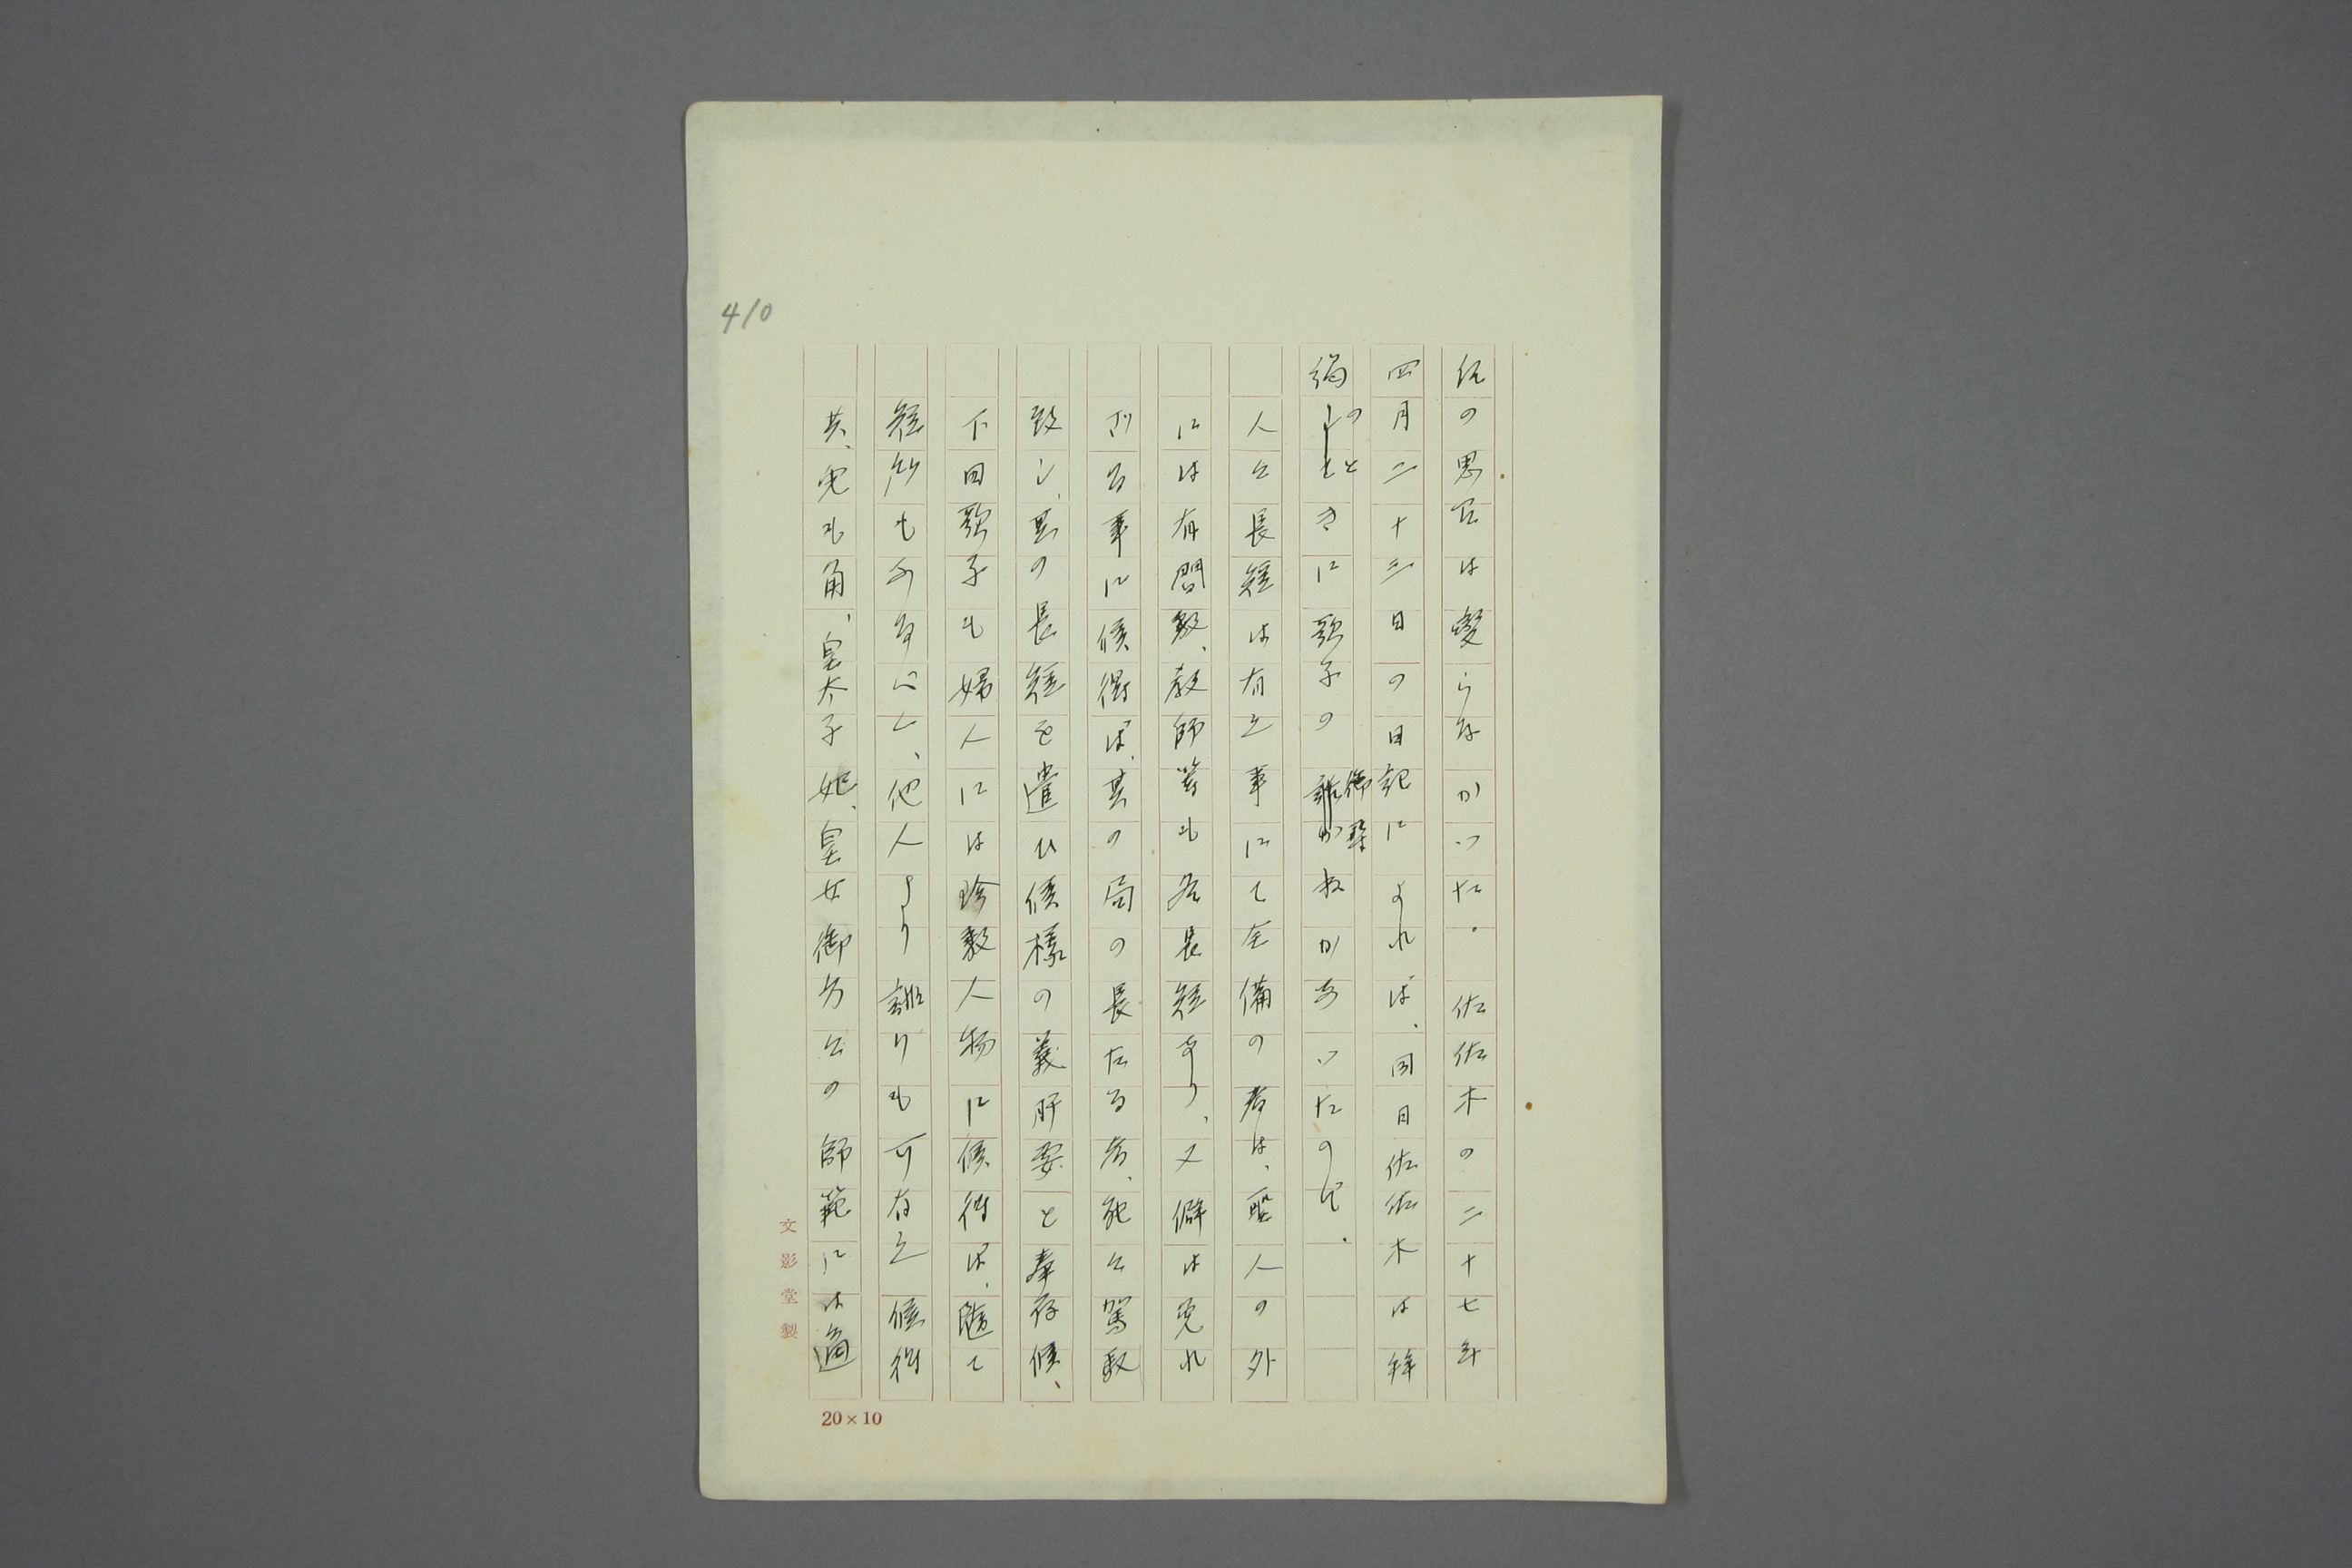 410
の思召は変らなかつた。佐佐木の二十七年
四月二十三日の日記によれば、同日佐佐木は拝
謁のときに歌子の御聲がかあつたのだ。
人に長短は有之事にて全備の者は、聖人の外
には有間敷、教師等も各長短あり、又僻は免れ
ざる事に候得ば、其の局の長たる者、能く駕馭
致し、其の長短を遣ひ候様の義肝要と奉存候、
下田歌子も婦人には珍敷人物に候得ば、随て
短所も可有之、他人より誹りも可有之候得
共、兎も角、皇太子妃、皇女御方々の師範には適
文影堂製
20×10